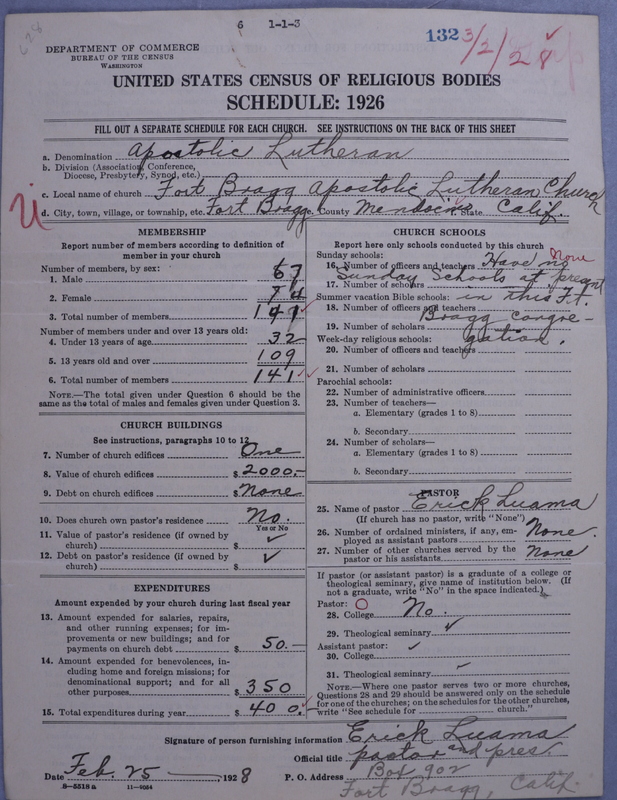 6 1-1-3
132 3/2/28
DEPARTMENT OF COMMERCE
BUREAU OF THE CENSUS
WASHINGTON
UNITED STATES CENSUS OF RELIGIOUS BODIES
SCHEDULE: 1926
FILL OUT A SEPARATE SCHEDULE FOR EACH CHURCH. SEE INSTRUCTIONS ON THE BACK OF THIS SHEET
a. Denomination Apostolic Lutheran
b. Division (Association, Conference,
Diocese, Presbytery, Synod, etc.)
c. Local name of church Fort Bragg Apostolic Lutheran Church
d. City, town, village, or township, etc. Fort Bragg County Mendocino State Calif.
MEMBERSHIP
Report number of members according to definition of
member in your church
Number of members, by sex:
1. Male 67
2. Female 74
3. Total number of members 141
Number of members under and over 13 years old:
4. Under 13 years of age 32
5. 13 years old and over 109
6. Total number of members 141
NOTE.—The total given under Question 6 should be
same as the total of males and females given under Question 3.
CHURCH BUILDINGS
See instructions, paragraphs 10 to 12
7. Number of church edifices One
8. Value of church edifices $ 2000.-
9. Debt on church edifices $ None
10. Does church own pastor's residence No.
Yes or No
11. Value of pastor's residence (if owned by
church) $ ✓
12. Debt on pastor's residence (if owned by
church) $ ✓
EXPENDITURES
Amount expended by your church during last fiscal year
13. Amount expended for salaries, repairs,
and other running expenses; for im-
provements or new buildings; and for
payments on church debt $ 50.—
14. Amount expended for benevolences, in-
cluding home and foreign missions; for
denominational support; and for all
other purposes $ 350
15. Total expenditures during year $ 400.
CHURCH SCHOOLS
Report here only schools conducted by this church
Sunday schools: None
16. Number of officers and teachers Have no
17. Number of scholars Sunday Schools at present
Summer vacation Bible schools: in this Ft.
18. Number of officers and teachers Bragg congre-
19. Number of scholars
Week-day religious schools: gation.
20. Number of officers and teachers
21. Number of scholars
Parochial schools:
22. Number of administrative officers
23. Number of teachers—
a. Elementary (grades 1 to 8)
b. Secondary
24. Number of scholars—
a. Elementary (grades 1 to 8)
b. Secondary
PASTOR
25. Name of pastor Erick Luama
(If church has no pastor, write "None")
26. Number of ordained ministers, if any, em-
ployed as assistant pastors None.
27. Number of other churches served by the
pastor or his assistants None
If pastor (or assistant pastor) is a graduate of a college or
theological seminary, give name of institution below. (If
not a graduate, write "No" in the space indicated.)
Pastor:
28. College No.
29. Theological seminary ✓
Assistant pastor: ✓
30. College
31. Theological seminary
NOTE.—Where one pastor serves two or more churches,
Questions 28 and 29 should be answered only on the schedule
for one of the churches; on the schedules for the other churches,
write "See schedule for church."
Signature of person furnishing information Erick Luama
Official title pastor and pres.
Date Feb. 25, 1928 P. O. Address Box 902
8—5518 a 11—8064 Fort Bragg, Calif.